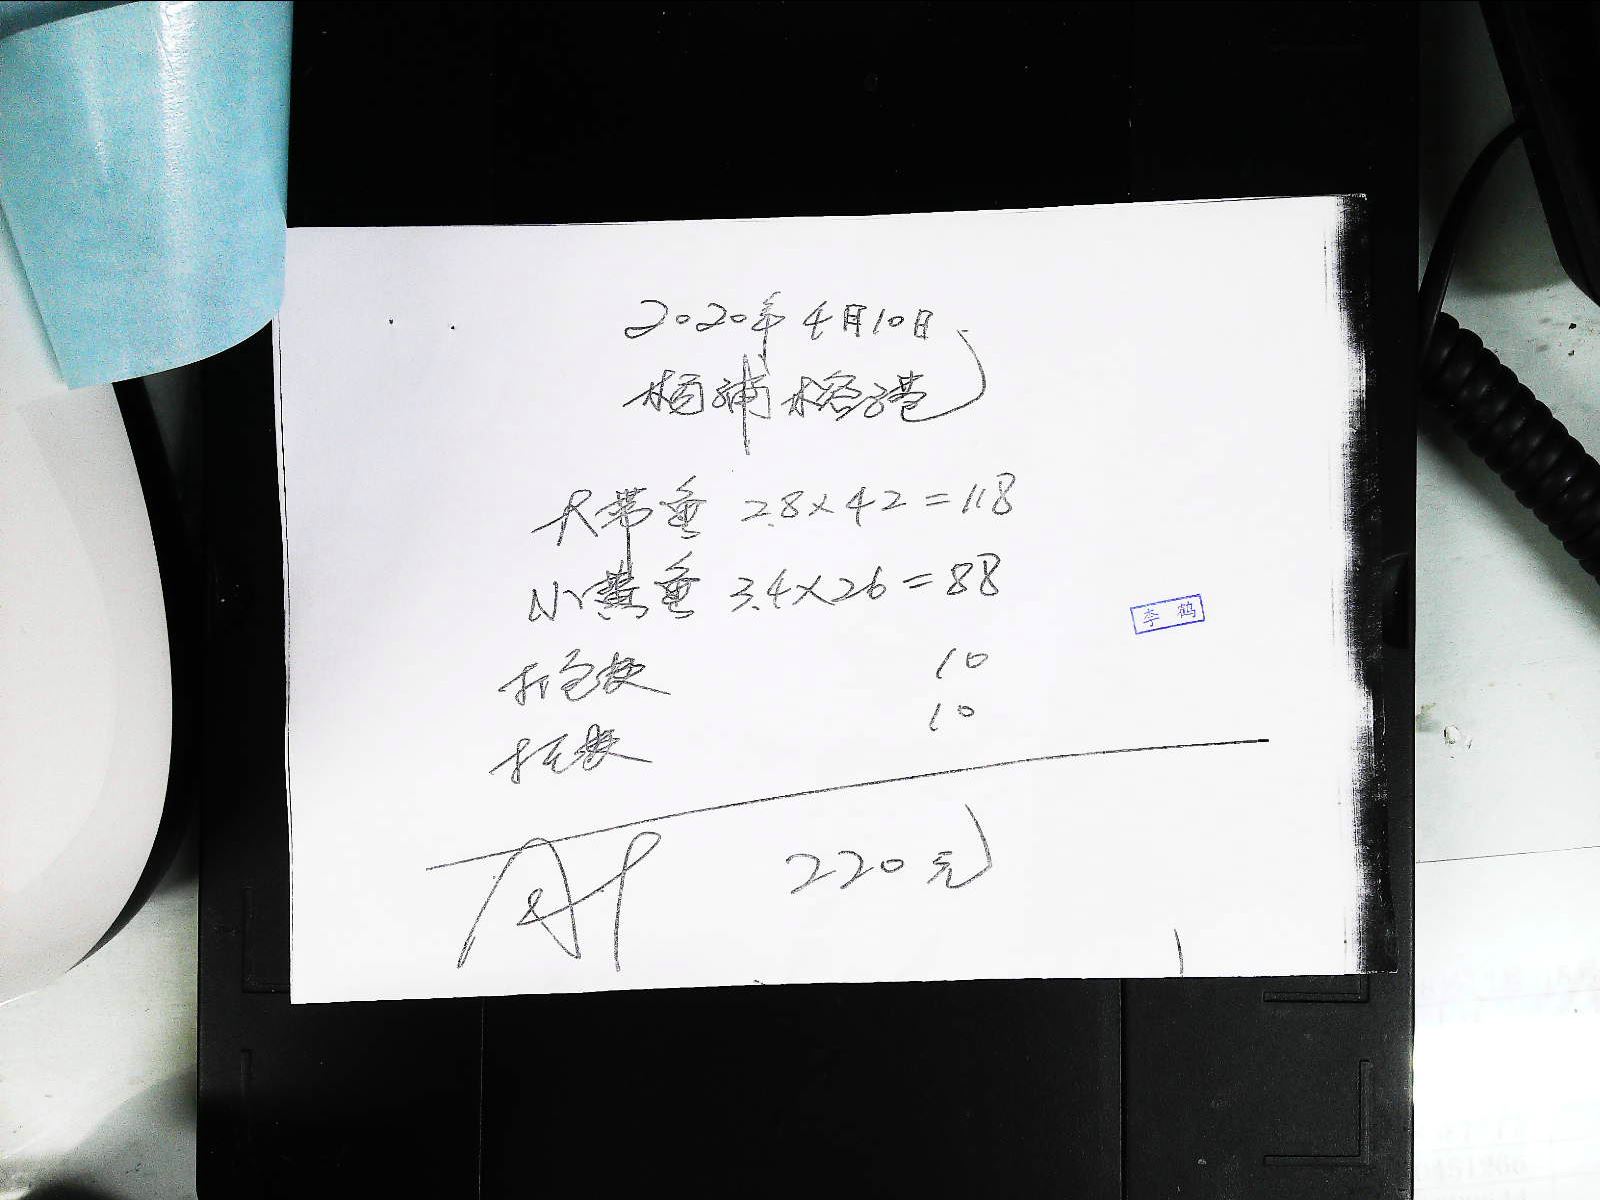 2020年4月10日
杨浦榕港
大带鱼 2.8×42=118
小黄鱼 3.4×26=88
李 鹤
打包费 10
打的费 10
220元